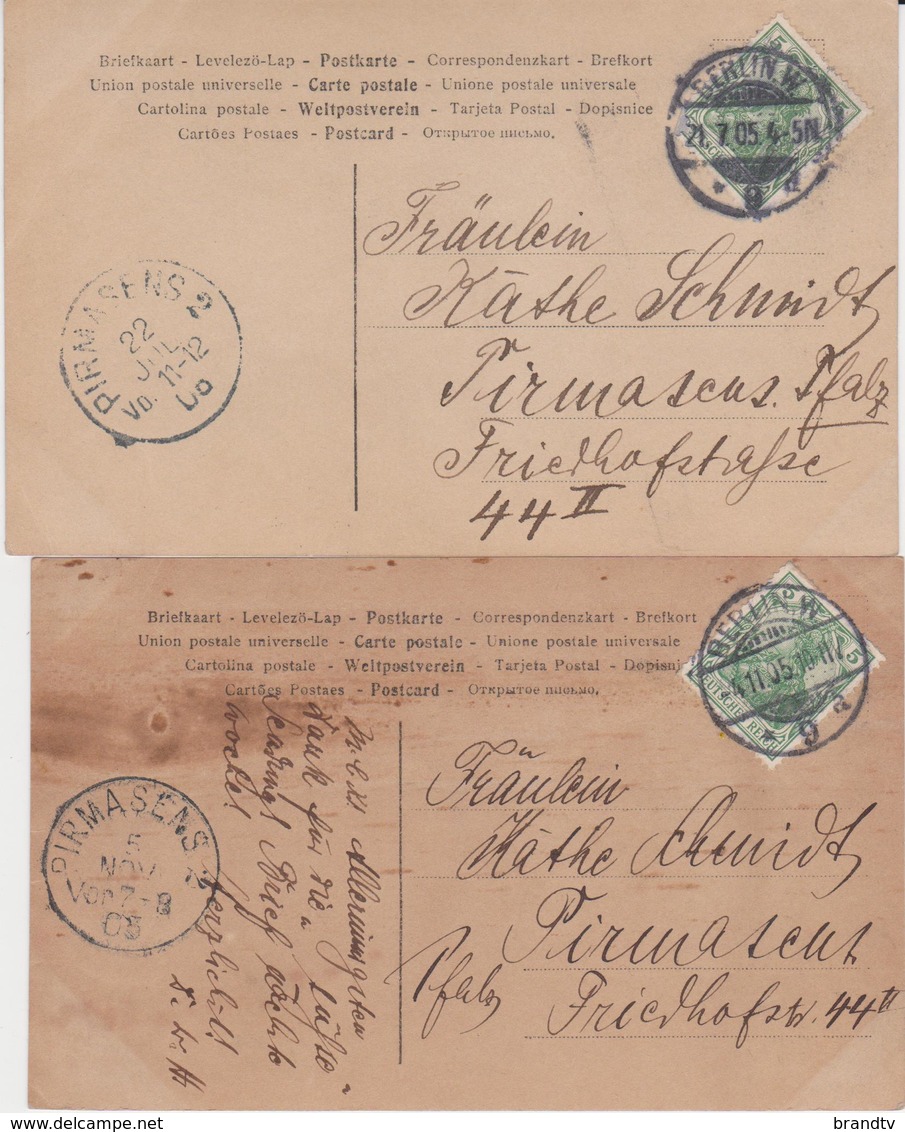 Briefkaart - Levelezö-Lap - Postkarte - Correspondenzkart - Brefkort
Union postale universelle - Carte postale - Unione postale universale
Cartolina postale - Weltpostverein - Tarjeta Postal - Dopisnice
Cartões Postaes - Postcard - Открытое письмо.
BERLIN W.
21.7.05.4-5N.
9 a
PIRMASENS 2
22
JUL
Vo. 11-12
05
Fräulein
Käthe Schmidt
Pirmasens. Pfalz
Friedhofstraße
44 II
Briefkaart - Levelezö-Lap - Postkarte - Correspondenzkart - Brefkort
Union postale universelle - Carte postale - Unione postale universale
Cartolina postale - Weltpostverein - Tarjeta Postal - Dopisnice
Cartões Postaes - Postcard - Открытое письмо.
5
5
DEUTSCHES REICH
BERLIN W
4.11.05.10-11V.
9 a
PIRMASENS 2
5
NOV
Vor 7-8
05
Dank für die
Brief
Woche!
Herzlichst
Fräulein
Käthe Schmidt
Pirmasens
Pfalz
Friedhofstr. 44 II
brandtv